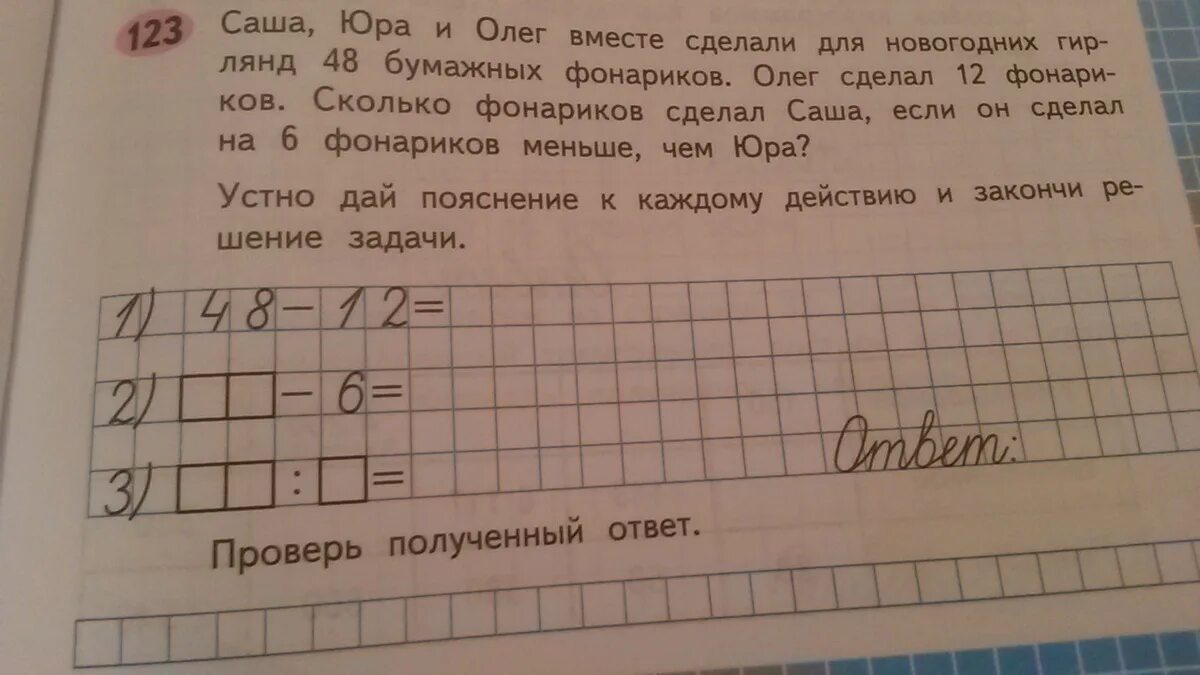 123 Саша, Юра и Олег вместе сделали для новогодних гир-
лянд 48 бумажных фонариков. Олег сделал 12 фонари-
ков. Сколько фонариков сделал Саша, если он сделал
на 6 фонариков меньше, чем Юра?
Устно дай пояснение к каждому действию и закончи ре-
шение задачи.
1) 48-12=
2) □□-6=
3) □□:□=
Ответ:
Проверь полученный ответ.